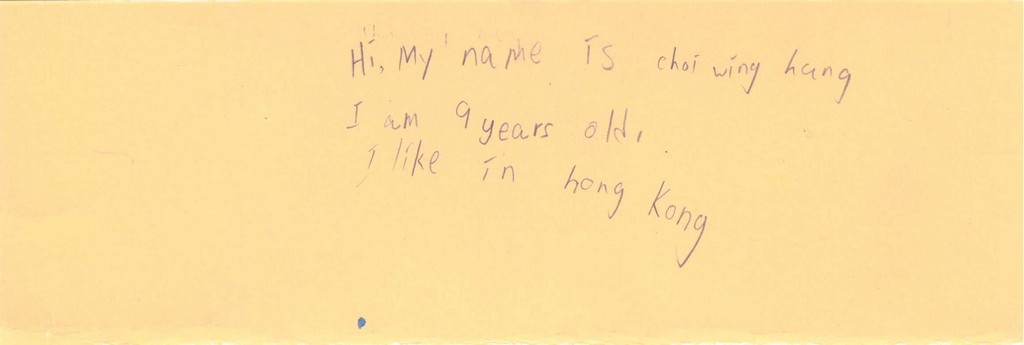 Hi, My name is choi wing hang
I am 9 years old,
I like in hong Kong